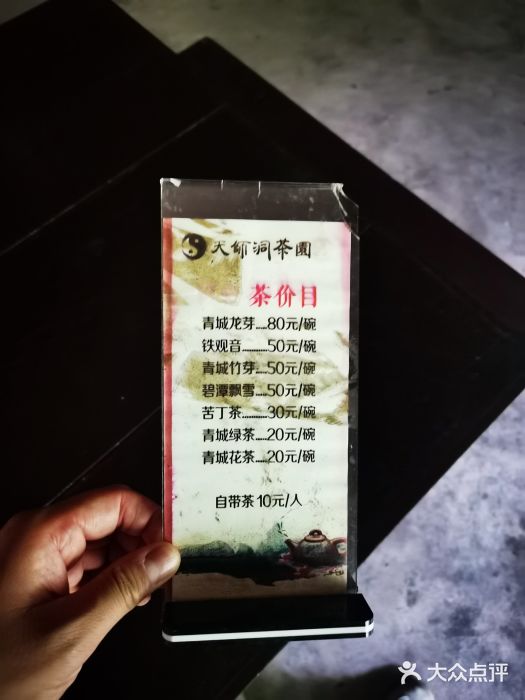 天師洞茶園
茶价目
青城龙芽.....80元/碗
铁观音............50元/碗
青城竹芽.....50元/碗
碧潭飘雪.....50元/碗
苦丁茶............30元/碗
青城绿茶.....20元/碗
青城花茶.....20元/碗
自带茶 10元/人
大众点评